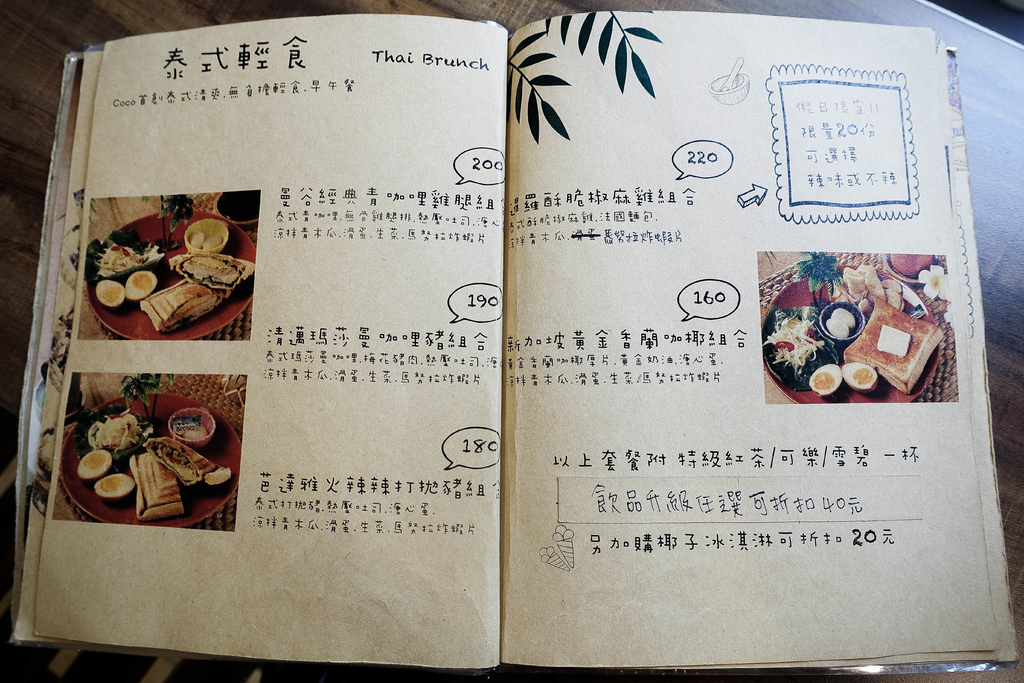 泰式輕食
Thai Brunch
Coco首創泰式清爽.無負擔輕食.早午餐
200
曼谷經典青咖哩雞腿組合
泰式青咖哩.無骨雞腿排.熱壓吐司.溏心
涼拌青木瓜.滑蛋.生菜.馬努拉炸蝦片
190
清邁瑪莎曼咖哩豬組合
泰式瑪莎曼咖哩.梅花豬肉.熱壓吐司.溏
涼拌青木瓜.滑蛋.生菜.馬努拉炸蝦片
180
芭達雅火辣辣打拋豬組合
泰式打拋豬.熱壓吐司.溏心蛋.
涼拌青木瓜.滑蛋.生菜.馬努拉炸蝦片
220
暹羅酥脆椒麻雞組合
泰式酥脆椒麻雞.法國麵包.
涼拌青木瓜.滑蛋.馬努拉炸蝦片
假日限定!!
限量20份
可選擇
辣味或不辣
160
新加坡黃金香蘭咖椰組合
黃金香蘭咖椰厚片.黃金奶油.溏心蛋.
涼拌青木瓜.滑蛋.生菜.馬努拉炸蝦片
以上套餐附 特級紅茶/可樂/雪碧 一杯
飲品升級任選可折扣40元
另加購椰子冰淇淋可折扣 20元